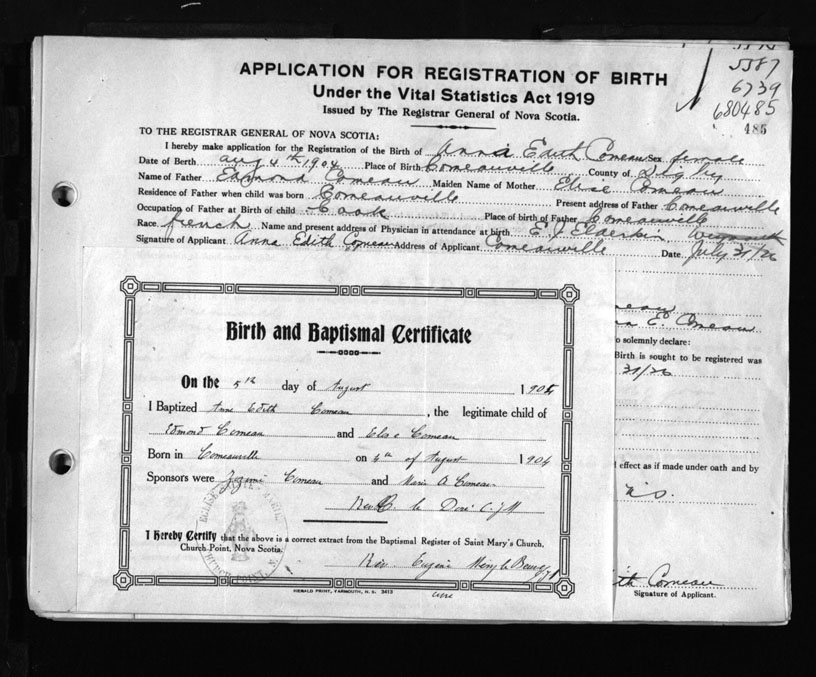 5587
6739
680485
485
APPLICATION FOR REGISTRATION OF BIRTH
Under the Vital Statistics Act 1919
Issued by The Registrar General of Nova Scotia.
TO THE REGISTRAR GENERAL OF NOVA SCOTIA:
I hereby make application for the Registration of the Birth of Anna Edith Comeau Sex female
Date of Birth Aug 4th 1904 Place of Birth Comeauville County of Digby
Name of Father Edmond Comeau Maiden Name of Mother Elise Comeau
Residence of Father when child was born Comeauville Present address of Father Comeauville
Occupation of Father at Birth of child Cook Place of birth of Father Comeauville
Race french Name and present address of Physician in attendance at birth E. J. Elderkin Weymouth
Signature of Applicant Anna Edith Comeau Address of Applicant Comeauville Date July 31/26
Birth and Baptismal Certificate
On the 5th day of August 1904
I Baptized Anne Edith Comeau, the legitimate child of
Edmond Comeau and Elise Comeau
Born in Comeauville on 4th of August 1904
Sponsors were Comeau and Marie A Comeau
Rev
I Hereby Certify that the above is a correct extract from the Baptismal Register of Saint Mary's Church,
Church Point, Nova Scotia.
Rev Eugene
HERALD PRINT, YARMOUTH, N. S. 3413
E. Comeau
o solemnly declare:
Birth is sought to be registered was
31/26
l effect as if made under oath and by
ith Comeau
Signature of Applicant.